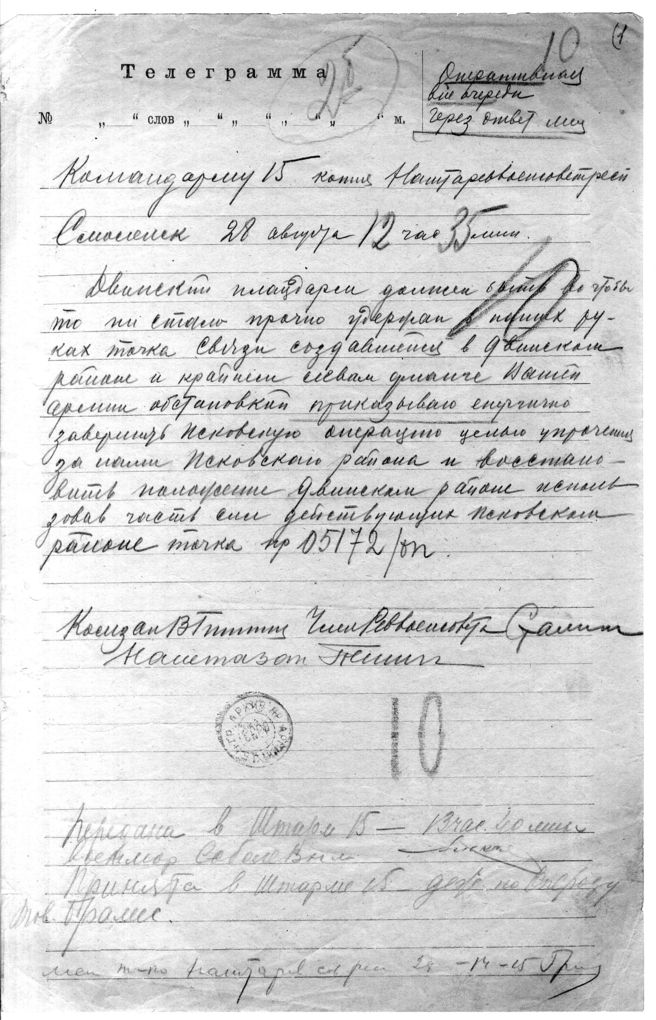 10
(1
Телеграмма
25
Оперативная
вне очереди
через ответ
№ „ “ слов „ “ „ “ „ “ „ “ м.
Командарму 15 копия
Смоленск 28 августа 12 час 35 мин.
10
Двинский плацдарм должен быть во чтобы
то ни стало прочно удержан в наших ру-
ках точка Связи создавшейся в Двинском
районе и крайнем левом фланге Вашей
армии обстановкой приказываю энергично
завершить Псковскую операцию целью упрочения
за нами Псковского района и восстано-
вить положение Двинском районе исполь
зовав часть сил действующих Псковском
районе точка нр 05172/оп.
Комзап ВГиттис Член Реввоенсовета Сталин
Наштазап
АРХИВ
10
Передана в Штарм 15 — 13 час. 20 мин
Принята в Штарме 15 деж по
тов.